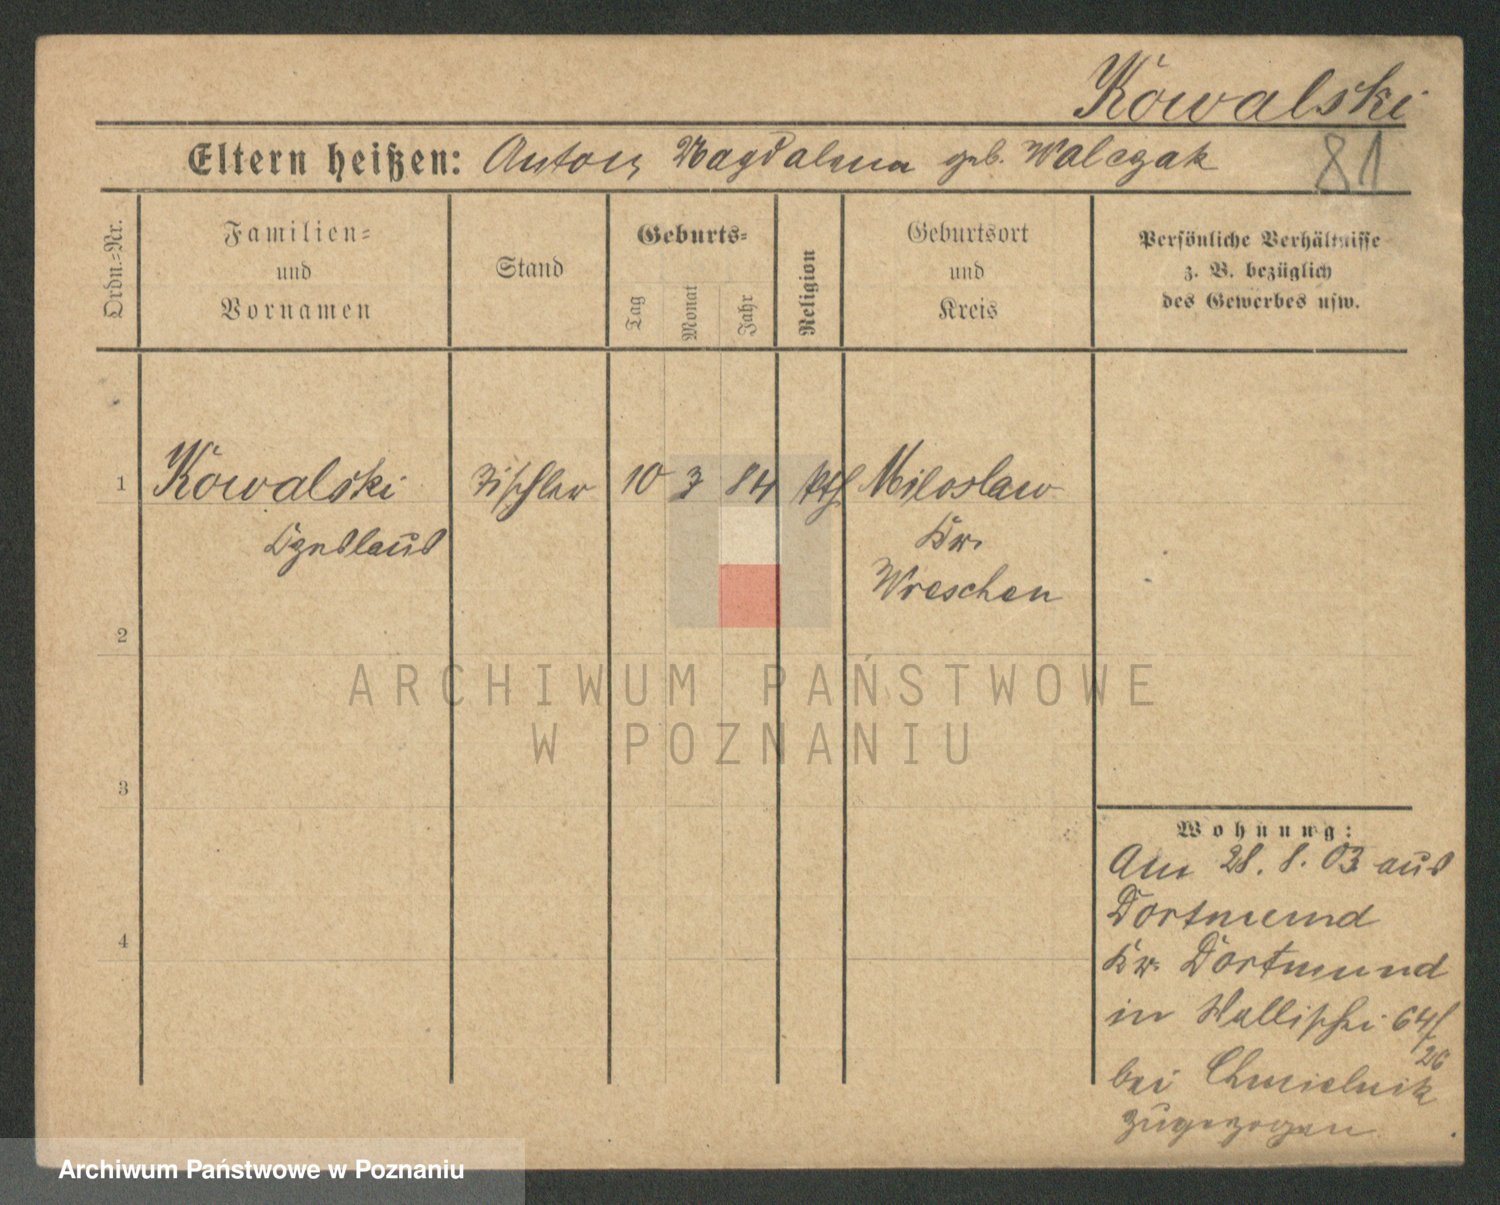 Kowalski
Eltern heißen: Anton, Magdalena geb. Walczak
81
Ordn.-Nr.
Familien-
und
Vornamen
Stand
Geburts-
Tag
Monat
Jahr
Religion
Geburtsort
und
Kreis
Persönliche Verhältnisse
z. B. bezüglich
des Gewerbes usw.
1 Kowalski Tischler 10 3 84 kth Miloslaw
Czeslaus Kr.
Wreschen
2
3
4
ARCHIWUM PAŃSTWOWE
W POZNANIU
Wohnung:
Am 28. 8. 03 aus
Dortmund
Kr. Dortmund
in Wallischei 64/
26
bei Chmielnik
zugezogen
Archiwum Państwowe w Poznaniu